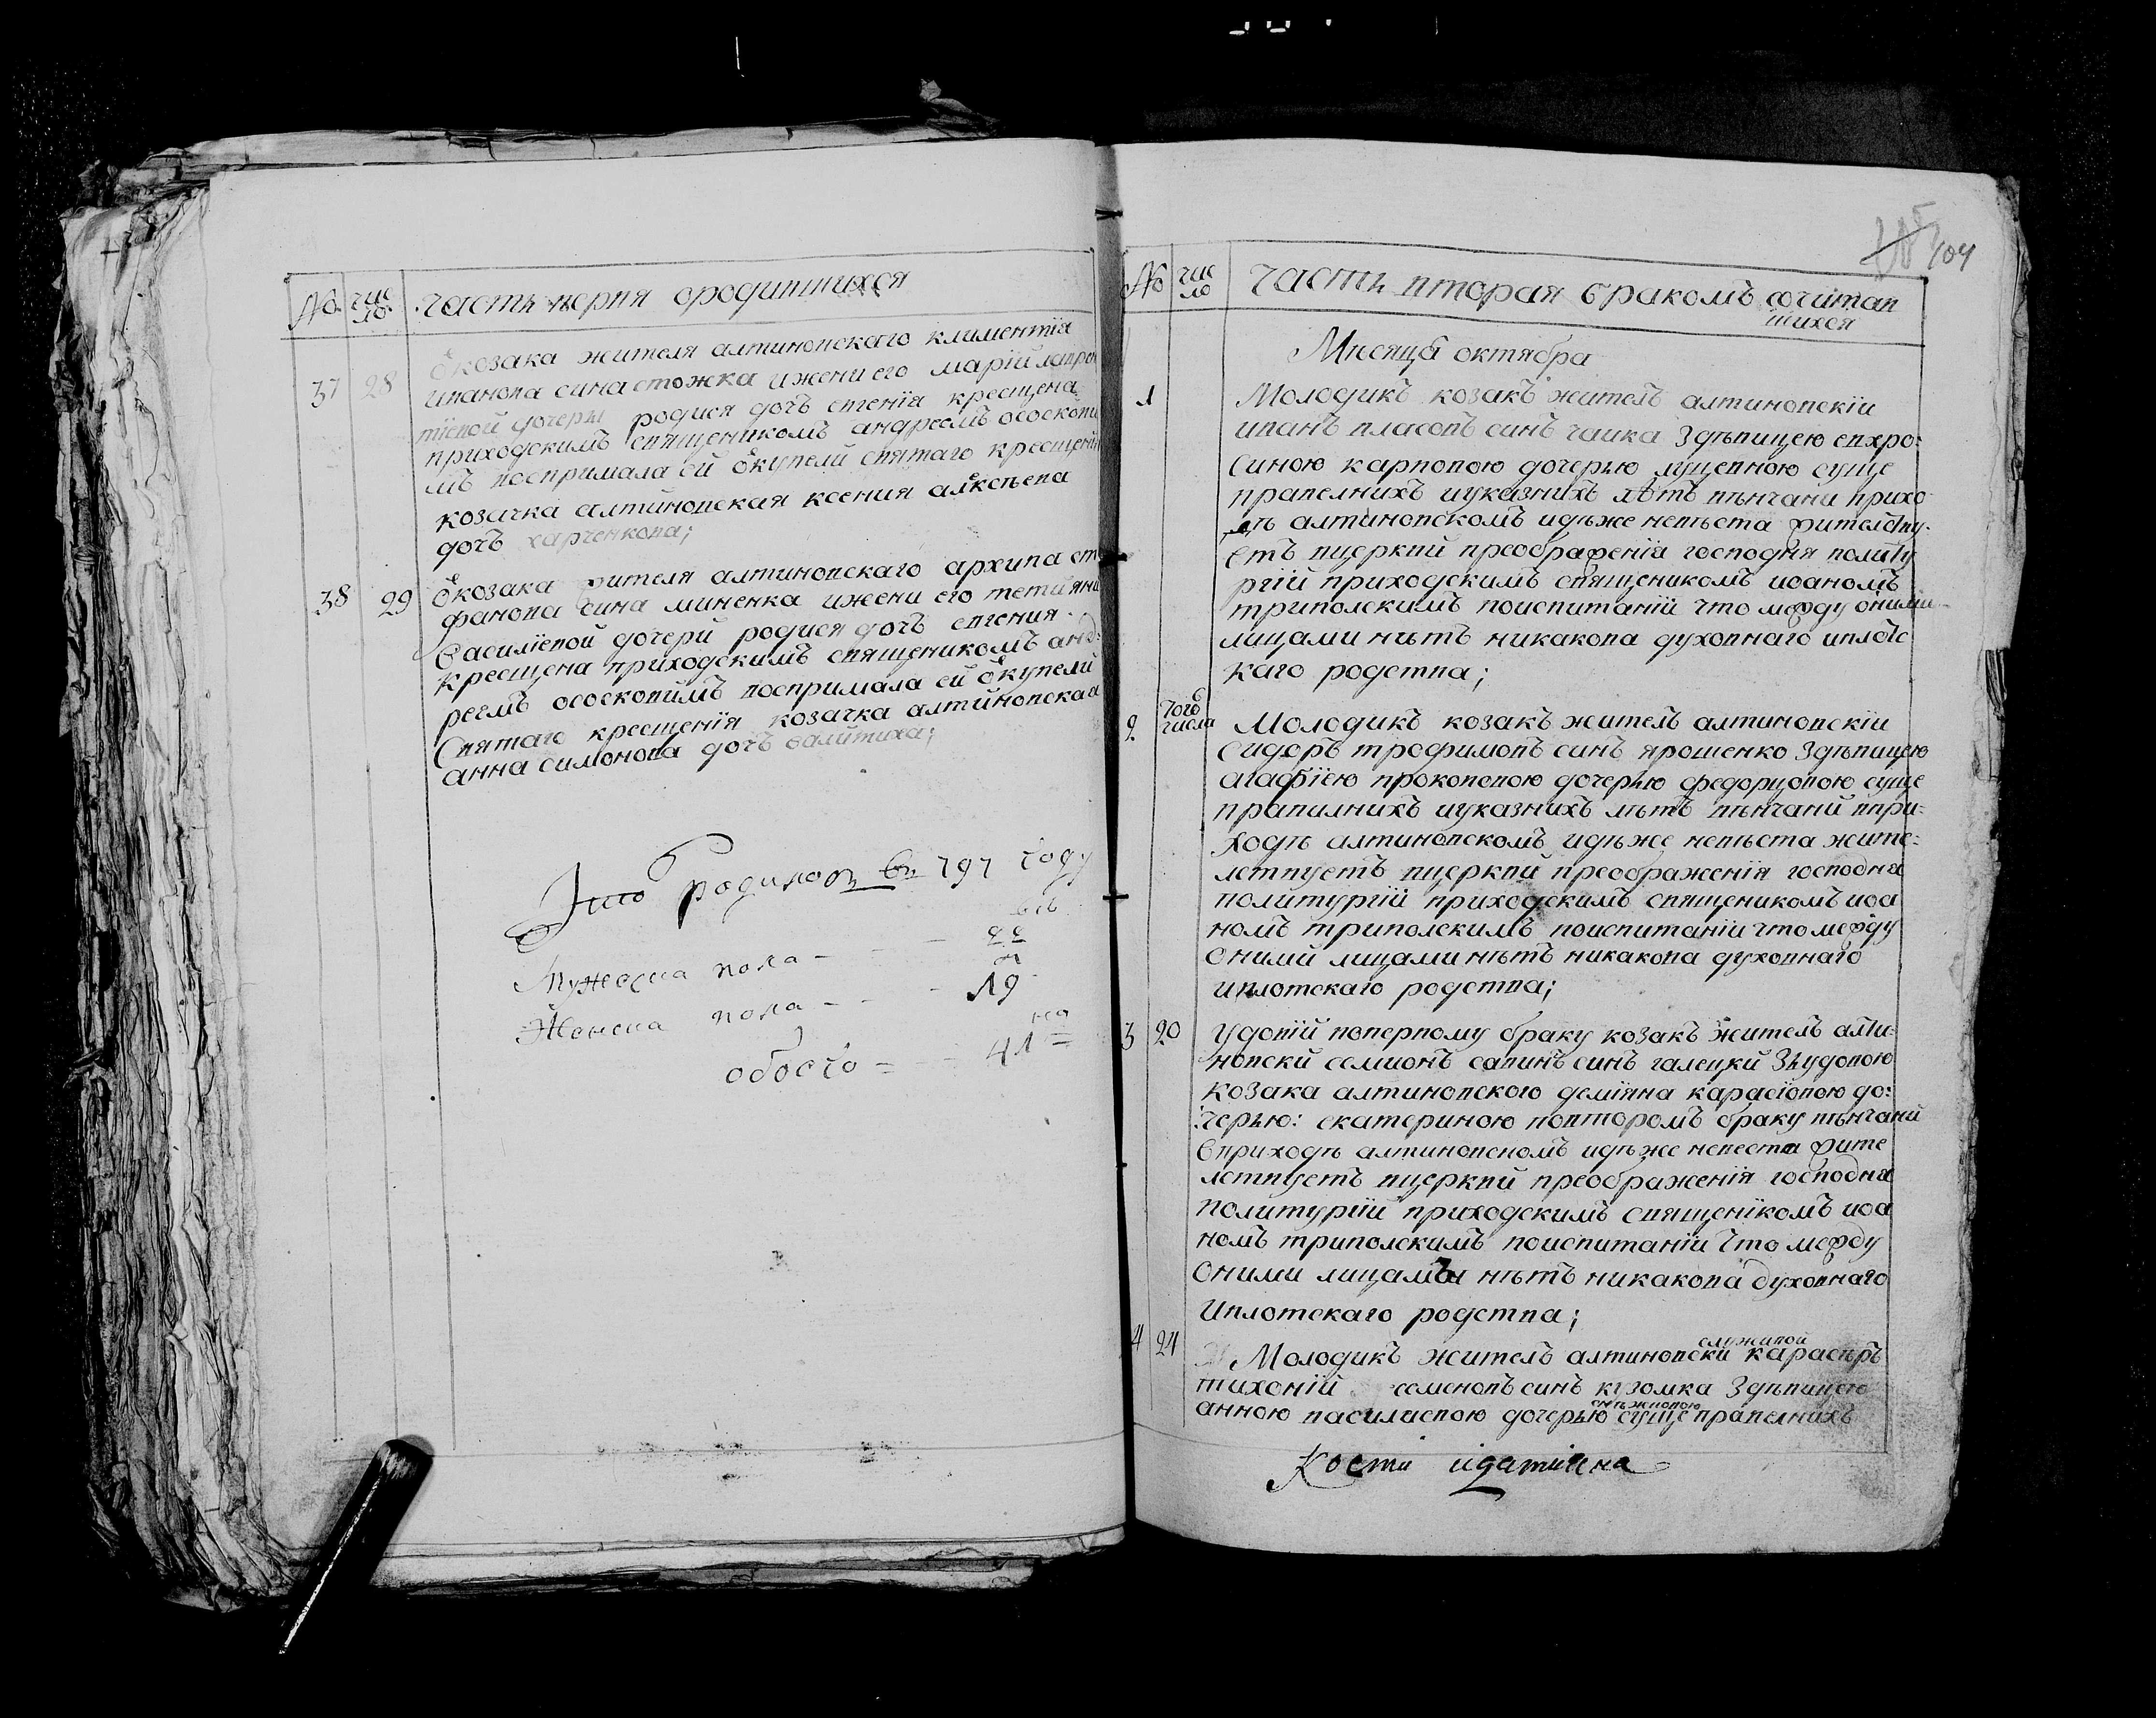 № чис
ло
часть первя ородившихся
37 28 Ѿ козака жителя алтиновскаго климентїа
иванова сина стожка ижени его марїй лавре
тїевой дочеры родися дочъ евгенїя крещена
приходскимъ священикомъ андреемъ ососкови
мъ воспримала ей Ѿ купели святаго крещенїя
козачка алтиновская ксения алексѣева
дочъ харченкова;
38 29 Ѿ козака жителя алтиновскаго архипа сте
фанова сина миненка ижени его тетияни
василїевой дочерй родися дочъ евгения
крещена приходскимъ священикомъ анд:
реемъ ососковимъ воспримала ей Ѿ купели
святаго крещенїя козачка алтиновская
анна симонова дочъ
родилось въ 797 году
22
Мужеска пола - - -
Женска пола - - - 19
обоего = - 41 =
104
№ чис
ло
часть вторая бракомъ сочитав
шихся
Мѣсяца октября
1 Молодикъ козакъ жителъ алтиновскїи
иванъ власовъ синъ чаика здѣвицею евхро:
синою карповою дочерью луцевною суще
правелнихъ иуказнихъ лѣтъ вѣнчани прихо
дѣ алтиновскомъ идѣже невѣста жителству:
етъ вцерквй преображенїя господня политу
ргїй приходскимъ священикомъ иоаномъ
триполскимъ поиспитанїй что между оними
лицами нѣтъ никакова духовнаго иплоте
каго родства;
2 Того
числа Молодикъ козакъ жителъ алтиновскїи
сидоръ трофимовъ синъ ярошенко здѣвицею
агафїею прокоповою дочерью федорцовою суще
правилнихъ иуказнихъ лѣтъ вѣнчанй впри:
ходѣ алтиновскомъ идѣже невѣста жите:
лствуетъ вцерквй преображенїя господня
политургїй приходскимъ священикомъ иоа
номъ триполскимъ поиспитанїи что между
оними лицами нѣтъ никакова духовнаго
иплотскаго родства;
3 20 удовїй поперному браку козакъ жителъ алти:
новски семионъ савинъ синъ галецки звудовою
козака алтиновского демїяна карасїовою до:
черью: екатериною повторомъ браку вѣнчанй
вприходѣ алтиновскомъ идѣже невеста жите
лствуетъ вцерквй преображенїя господня
политургїй приходскимъ священїкомъ иоа
номъ триполскимъ поиспитанїи что между
оними лицами нѣтъ никакова духовнаго
иплотскаго родства;
4 24 Молодикъ жителъ алтиновски служивой
тихонїй семеновъ синъ кузомка здѣвицею
анною василиевою дочерью суще правелнихъ